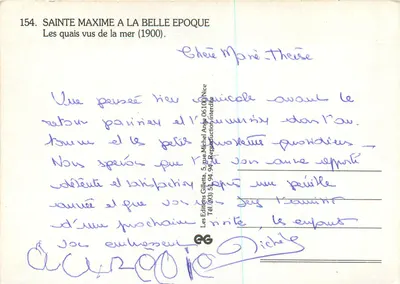 154. SAINTE MAXIME A LA BELLE EPOQUE
Les quais vus de la mer (1900).
Chère Marie-Thérèse
Une pensée bien amicale avant le
retour parisien et l'immersion dans l'au
tomne et les petits problèmes quotidiens -
Nous espérons que l'été vous aura apporté
détente et satisfaction après une pénible
année et que vous
d'une prochaine visite, les enfants
vous embrassent
Michèle
Les Editions Gilletta, 5, rue Michel Ange 06100 Nice
Tél. (93) 51 94 96 - Reproduction interdite